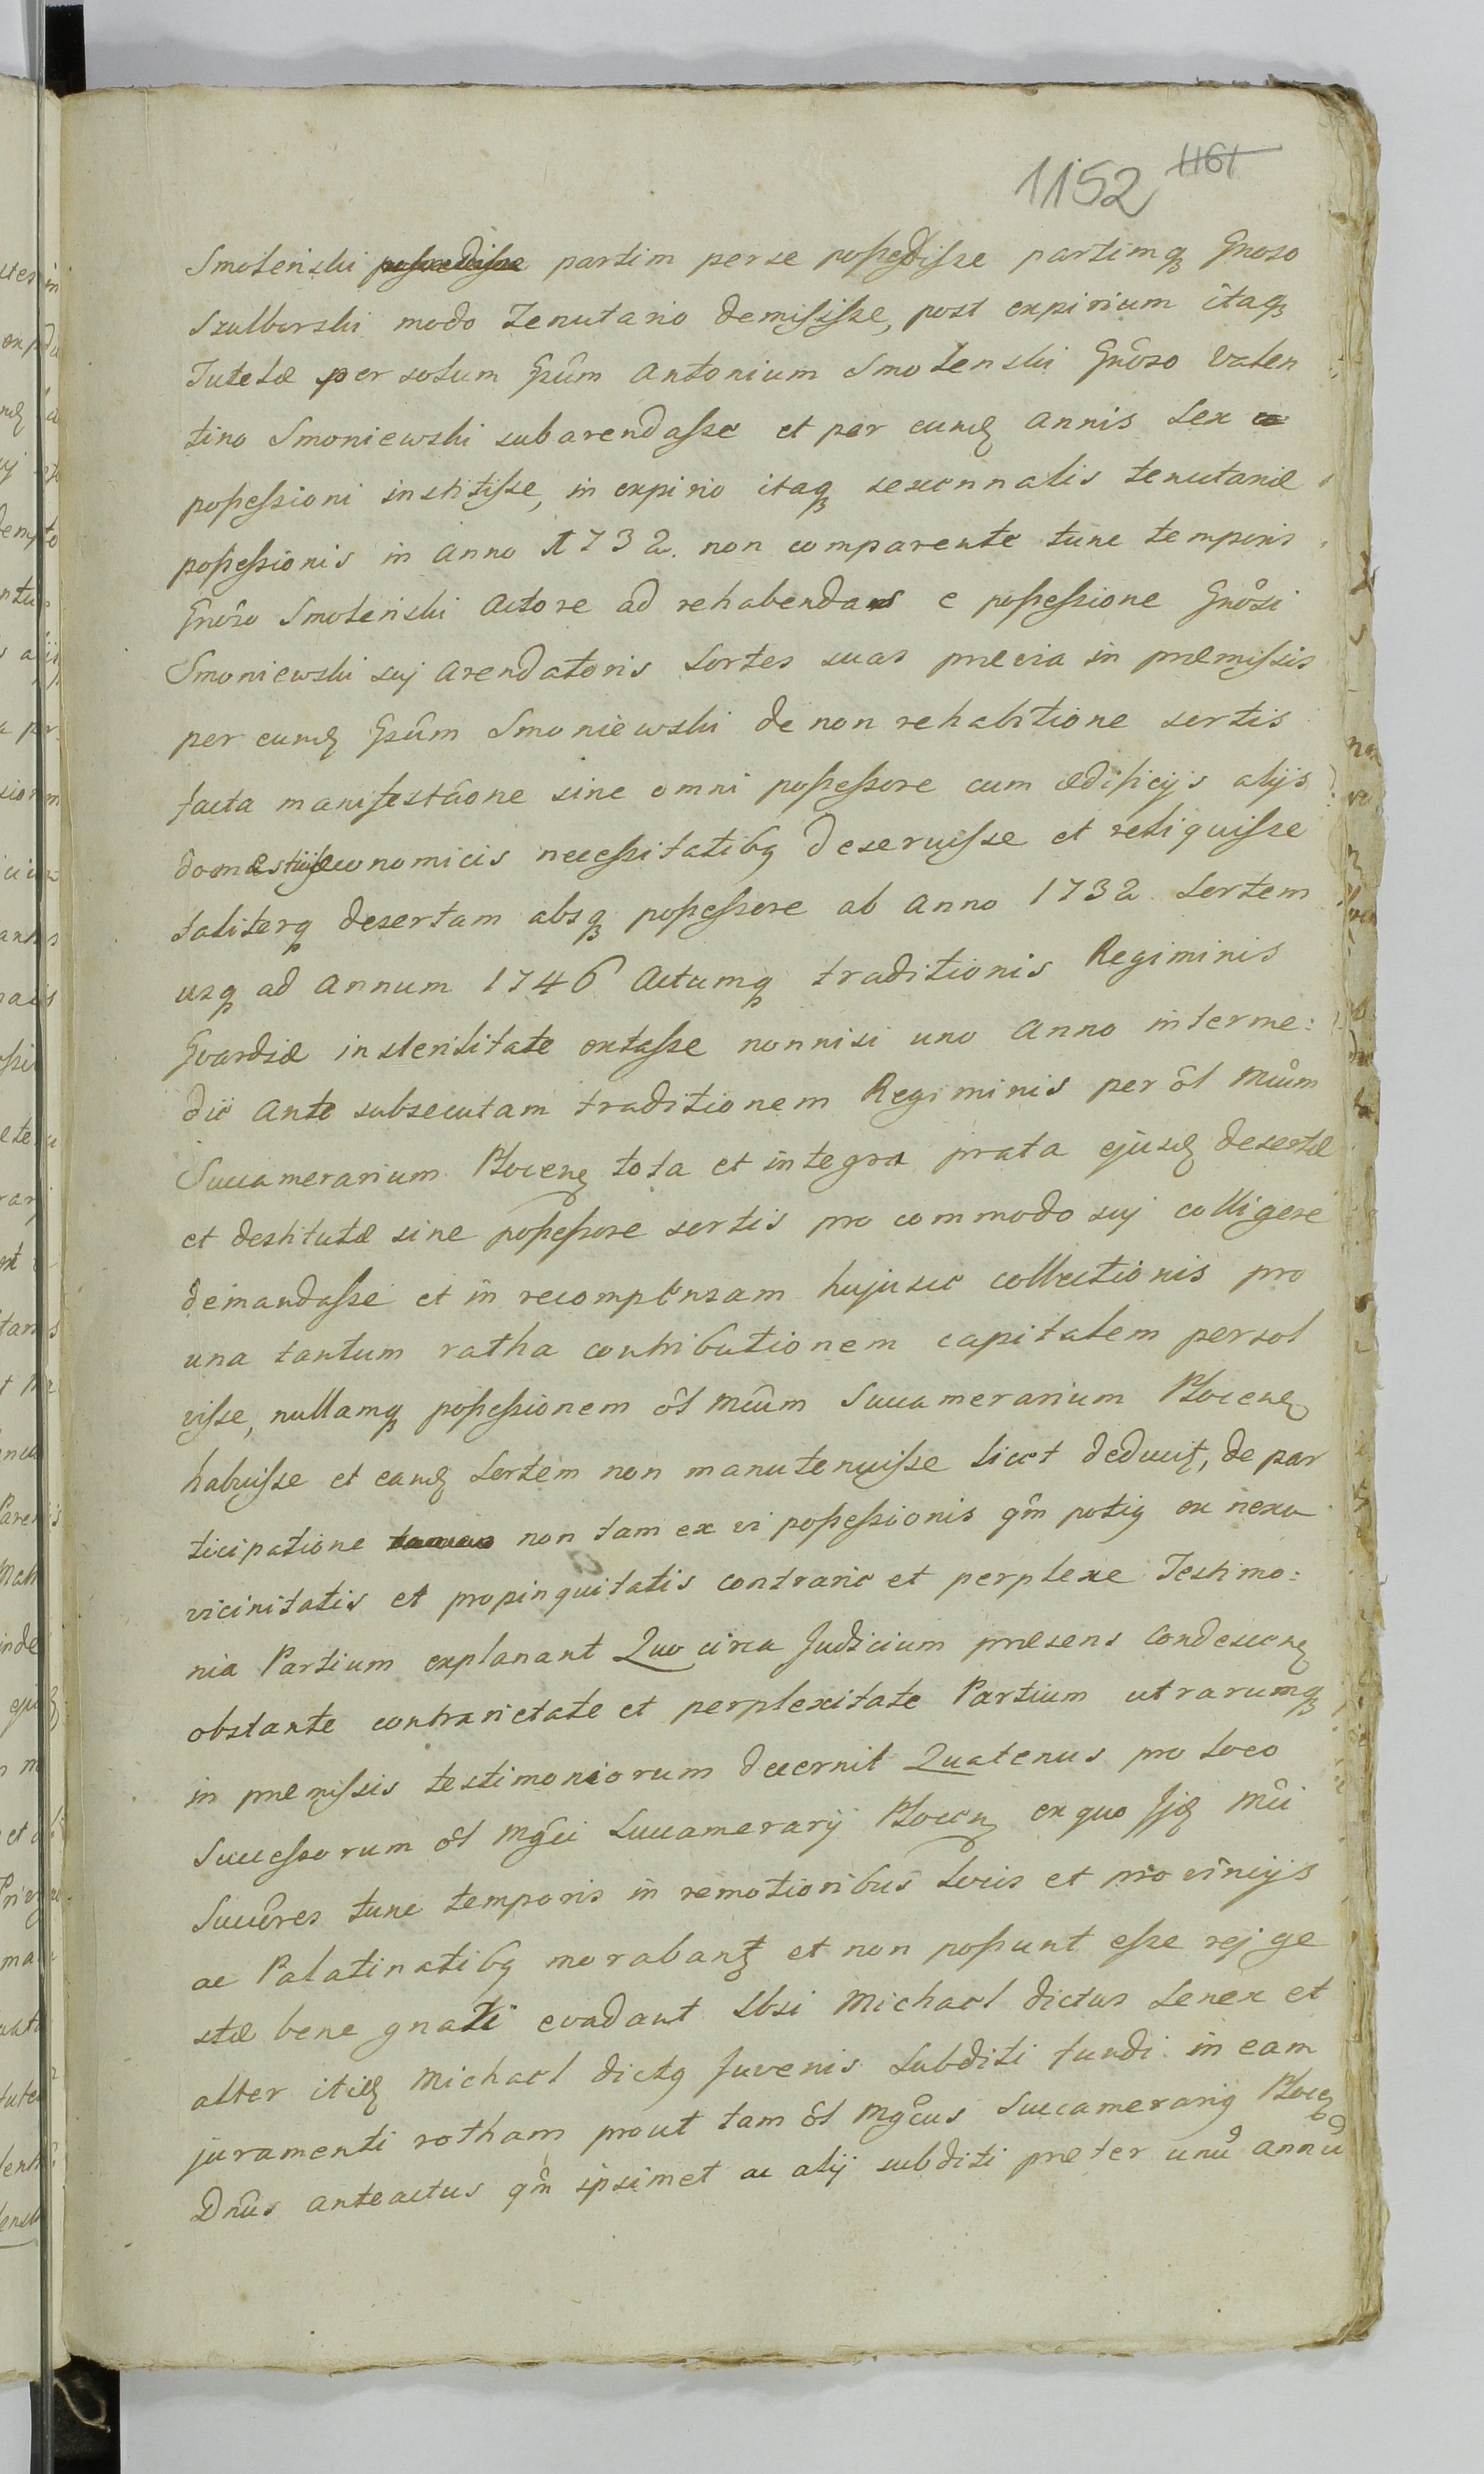 1152 1161
Smoleński possedisse partim per se possedisse partimq Gnoso
Szulborski modo Tenutario demisisse, post expirium itaq
Tutelæ per solum Gsûm Antonium Smolenski Gnôso Valen
tino Smoniewski subarendasse et per eumd annis sex
possessioni institisse, in expirio itaq sexennalis tenutariæ
possessionis in Anno 1732. non comparente tunc temporis
Gnôso Smoleński Actore ad rehabendas e possessione Gnôsi
Smoniewski suj Arendatoris Sortes suas prævia in præmissis
per eumd Gsûm Smoniewski de non rehabitione sortis
facta manifestâone sine omni possessore cum ædificijs alijs
domesticis œconomicis necessitatibq deseruisse et reliquisse
taliterq desertam absq possessore ab Anno 1732 Sortem
usq ad Annum 1746 Actumq traditionis Regiminis
Gvardiæ in sterilitate extasse nonnisi uno Anno interme:
die Ante subsecutam traditionem Regiminis per ôl Mcûm
Succamerarium Plocen tota et integra prata ejusd desertæ
et destitutæ sine possessore sortis pro commodo suj colligere
demandasse et in recompensam hujusce collectionis pro
una tantum ratha contributionem capitalem persol
visse, nullamq possessionem ôl Mcûm Succamerarium Plocen
habuisse et eamd Sortem non manutenuisse licet deducit, de par
ticipatione non tam ex vi possessionis qm̂ potiq ex nexu
vicinitatis et propinquitatis contrarie et perplexe Testimo:
nia Partium explanant Quo circa Judicium præsens Condescen
obstante contrarietate et perplexitate Partium utrarumq
in præmissis testimoniorum decernit Quatenus pro loco
Successorum ôl Mgci Succamerarij Plocen ex quo Ijd Mci
Succêres tunc temporis in remotioribus Locis et provincijs
ac Palatinatibq morabant et non possunt esse rej ge
stæ bene gnari evadant Lbsi Michael dictus Senex et
alter itid Michael dictq Juvenis Subditi fundi in eam
juramenti rotham prout tam ôl Mgcus Succamerariq Plocen
Dnûs anteactus qm̂ ipsimet ac alij subditi præter unũ annũ